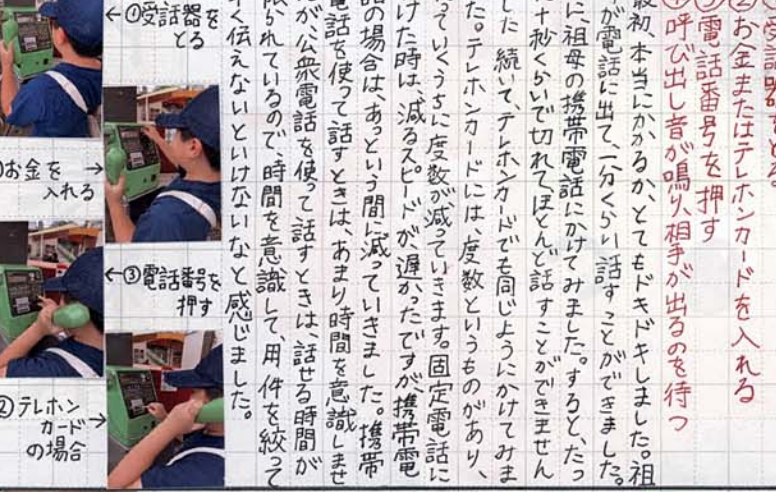 受話器をとる
②お金またはテレホンカードを入れる
③電話番号を押す
呼び出し音が鳴り、相手が出るのを待つ
最初、本当にかかるか、とてもドキドキしました。祖
が電話に出て、一分くらい話すことができました。
に、祖母の携帯電話にかけてみました。すると、たっ
十秒くらいで切れて、ほとんど話すことができません
した 続いて、テレホンカードでも同じようにかけてみま
た。テレホンカードには、度数というものがあり、
っていくうちに度数が減っていきます。固定電話に
けた時は、減るスピードが遅かったですが、携帯電
話の場合は、あっという間に減っていきました。携帯
電話を使って話すときは、あまり時間を意識しませ
が、公衆電話を使って話すときは、話せる時間が
限られているので、時間を意識して、用件を絞って
く伝えないといけないなと感じました。
←①受話器を
とる
お金を→
入れる
←③電話番号を
押す
②テレホン
カード→
の場合